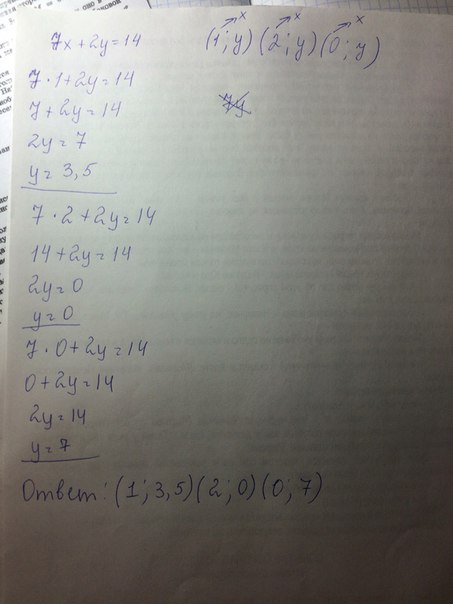 7x + 2y = 14
(1; y) (2; y) (0; y)
x x x
7 · 1 + 2y = 14
7 + 2y = 14
2y = 7
y = 3,5
7 · 2 + 2y = 14
14 + 2y = 14
2y = 0
y = 0
7 · 0 + 2y = 14
0 + 2y = 14
2y = 14
y = 7
Ответ: (1; 3,5) (2; 0) (0; 7)